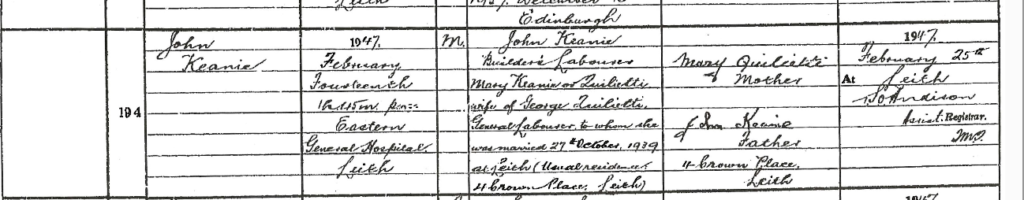 Leith
Edinburgh
194
John
Keanie
1947.
February
Fourteenth
Eastern
General Hospital
Leith
M.
John Keanie
Builder's Labourer
Mary Keanie or Quilietti
wife of George Quilietti,
General Labourer, to whom she
was married 27th October, 1939
at Leith (Usual residence
4 Crown Place, Leith)
Mary Quilietti
Mother
John Keanie
Father
4 Crown Place,
Leith
1947.
February 25th
At Leith
Assist. Registrar.
1947.